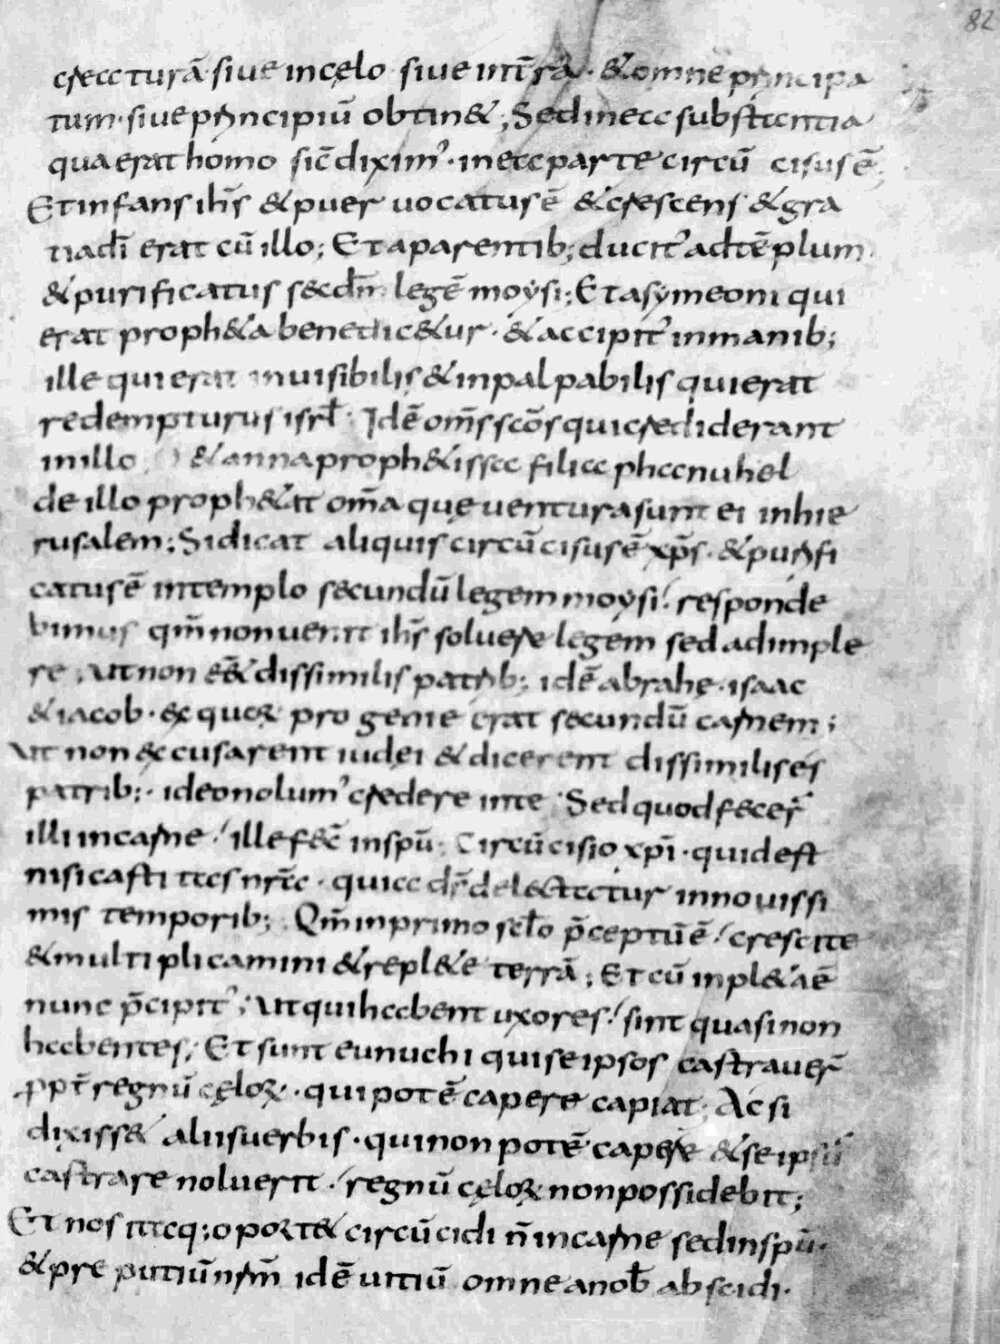 82
creaturā sive incęlo sive intr̄ra · & omne principa
tum · sive principiū obtin& ; Sed inea substantia
qua erat homo sic̄ diximꝰ · inea parte circū cisus ē ;
Et infans ih̄s & puer vocatus ē & crescens & gra
tia dī erat cū illo ; Et a parentib; ducitꝰ ad tēplum
& purificatus secdm̄ legē moysi ; Et a symeoni qui
erat proph&a benedic&ur · & accipitꝰ inmanib;
ille qui erat invisibilis & inpalpabilis qui erat
redempturus isrl̄ · Idē om̄s scōs qui crediderant
inillo & anna proph&issa filia phanuhel
de illo proph&at om̄a quę ventura sunt ei inhie
rusalem ; Si dicat aliquis circū cisus ē xp̄s · & purifi
catus ē intemplo secundū legem moysi ! responde
bimus qm̄ non venit ih̄s solvere legem sed adimple
re ; ut non e&̄ dissimilis patrib; idē abrahę · isaac
& iacob · ex quoꝝ progenie erat secundū carnem ;
Ut non excusarent iudei & dicerent dissimilis es
patrib; · ideo nolumꝰ credere inte · Sed quod fecer̄
illi incarne ! ille fec̄ inspū ; Circūcisio xp̄i · quid est
nisi castitas nr̄a · qua dr̄ delectatur innovissi
mis temporib; ; Qm̄ inprimo scl̄o p̄ceptū ē ! crescite
& multiplicamini & repl&e terrā ; Et cū inpl&a ē
nunc p̄cipitꝰ ; Ut qui habent uxores ! sint quasi non
habentes ; Et sunt eunuchi qui se ipsos castraver̄
ppt̄ regnū cęloꝝ · qui potē capere capiat ; Ac si
dixiss& aliis verbis · qui non potē capere & se ipsū
castrare noluerit · ! regnū cęloꝝ non possidebit ;
Et nos itaq; oport& circūcidi n̄ incarne sed inspū ·
& preputiū nrm̄ idē vitiū omne a nob̄ abscidi ·